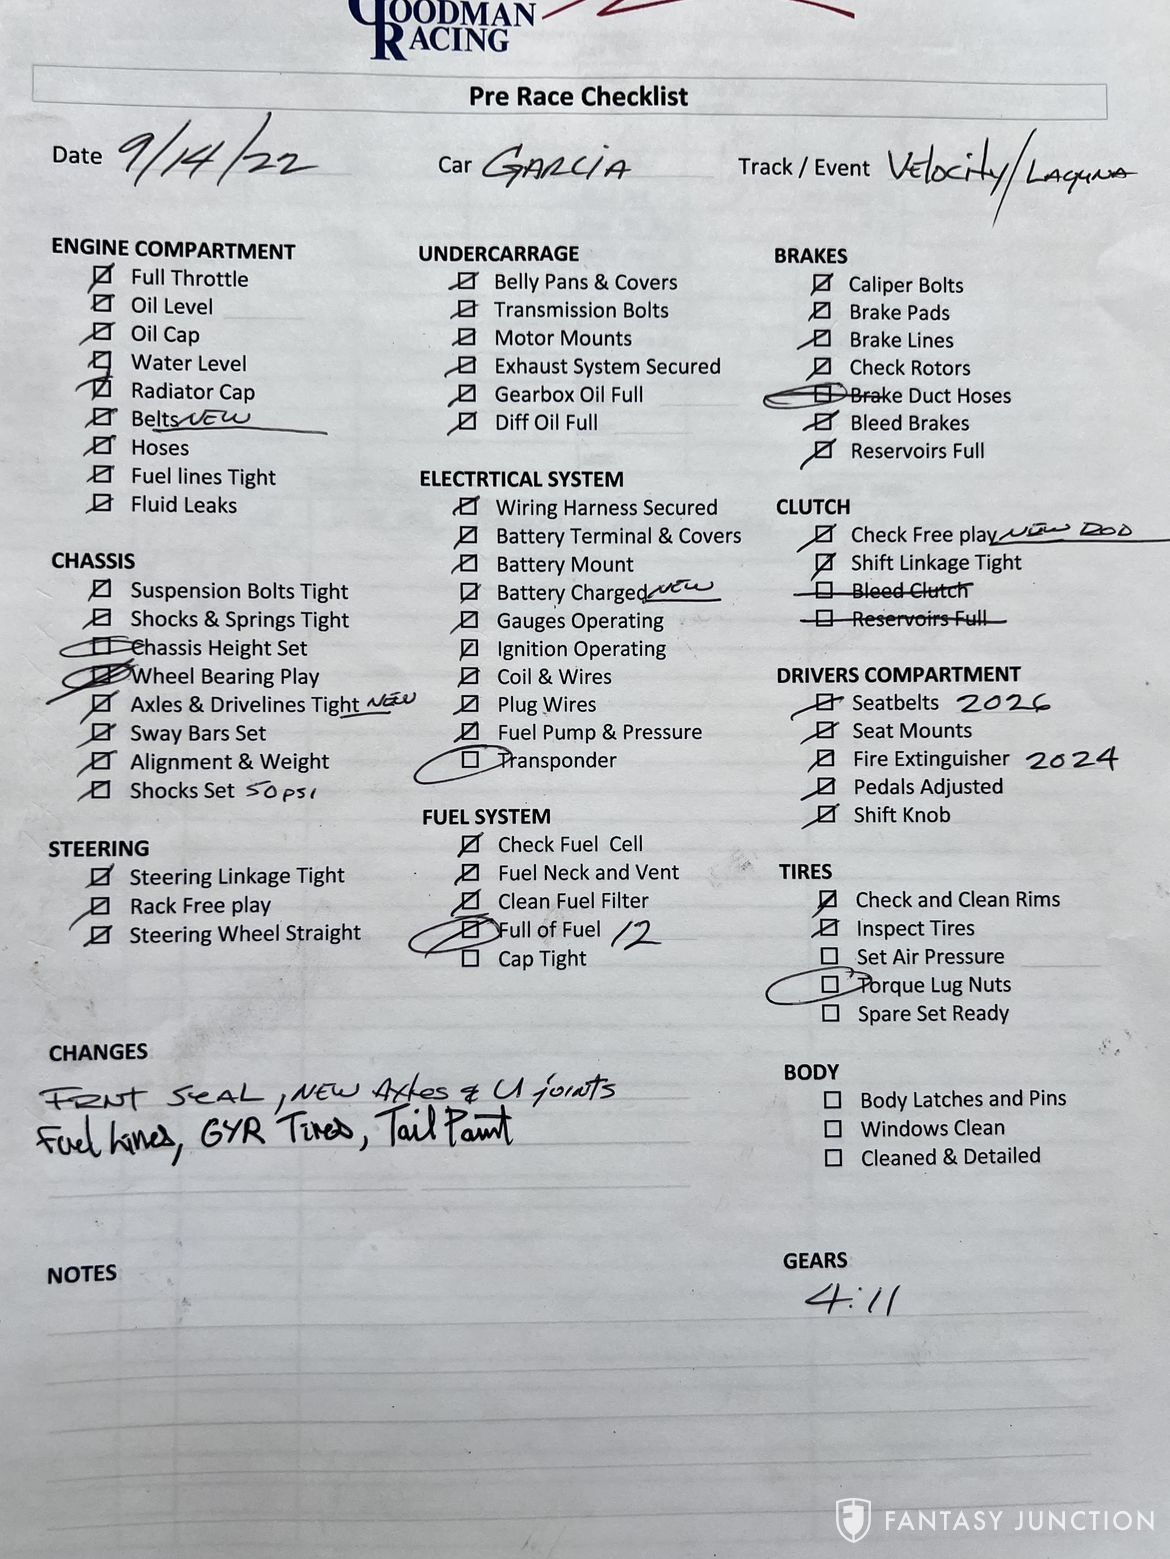 GOODMAN
RACING
Pre Race Checklist
Date 9/14/22
Car GARCIA
Track / Event Velocity/LAGUNA
ENGINE COMPARTMENT
Full Throttle
Oil Level
Oil Cap
Water Level
Radiator Cap
Belts NEW
Hoses
Fuel lines Tight
Fluid Leaks
CHASSIS
Suspension Bolts Tight
Shocks & Springs Tight
Chassis Height Set
Wheel Bearing Play
Axles & Drivelines Tight NEW
Sway Bars Set
Alignment & Weight
Shocks Set 50 psi
STEERING
Steering Linkage Tight
Rack Free play
Steering Wheel Straight
UNDERCARRAGE
Belly Pans & Covers
Transmission Bolts
Motor Mounts
Exhaust System Secured
Gearbox Oil Full
Diff Oil Full
ELECTRTICAL SYSTEM
Wiring Harness Secured
Battery Terminal & Covers
Battery Mount
Battery Charged NEW
Gauges Operating
Ignition Operating
Coil & Wires
Plug Wires
Fuel Pump & Pressure
Transponder
FUEL SYSTEM
Check Fuel Cell
Fuel Neck and Vent
Clean Fuel Filter
Full of Fuel 12
Cap Tight
BRAKES
Caliper Bolts
Brake Pads
Brake Lines
Check Rotors
Brake Duct Hoses
Bleed Brakes
Reservoirs Full
CLUTCH
Check Free play NEW ROD
Shift Linkage Tight
Bleed Clutch
Reservoirs Full
DRIVERS COMPARTMENT
Seatbelts 2026
Seat Mounts
Fire Extinguisher 2024
Pedals Adjusted
Shift Knob
TIRES
Check and Clean Rims
Inspect Tires
Set Air Pressure
Torque Lug Nuts
Spare Set Ready
BODY
Body Latches and Pins
Windows Clean
Cleaned & Detailed
CHANGES
FRNT SEAL, NEW Axles & U joints
Fuel Lines, GYR Tires, Tail Paint
NOTES
GEARS
4:11
FANTASY JUNCTION